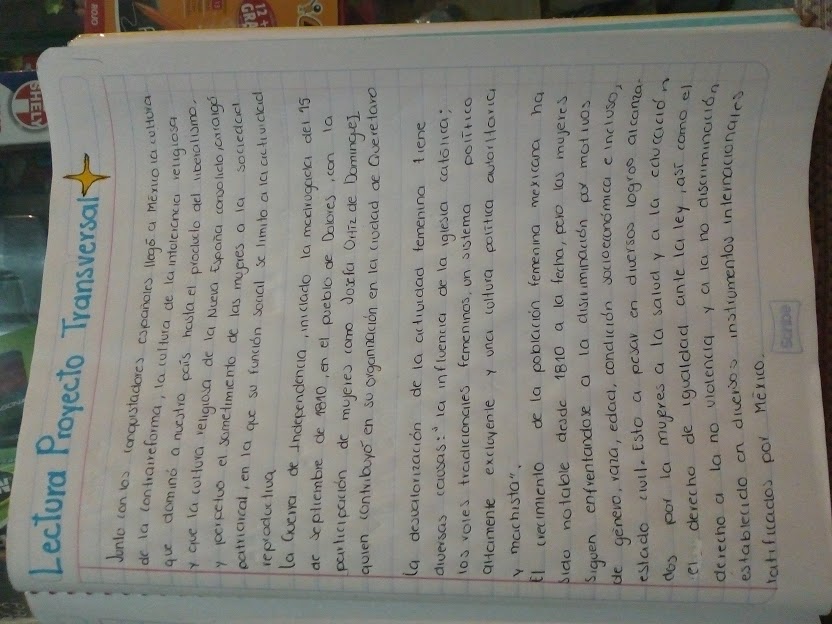 Lectura Proyecto Transversal
Junto con los conquistadores españoles llegó a México la cultura
de la contrarreforma, la cultura de la intolerancia religiosa
que dominó a nuestro país hasta el producto del liberalismo.
y que la cultura religiosa de la Nueva España consolido, arraigó
y perpetuo el sometimiento de las mujeres a la sociedad
patriarcal, en la que su función social se limito a la actividad
reproductiva
La Guerra de Independencia, iniciado la madrugada del 15
de septiembre de 1810, en el pueblo de Dolores, con la
participación de mujeres como Josefa Ortiz de Domingez
quien contribuyó en su organnación en la ciudad de Queretaro
La desvalorización de la actividad femenina tiene
diversas causas: "la influencia de la iglesia católica;
los roles tradicionales femeninos, un sistema político
altamente excluyente y una cultura política autoritaria
y machista".
El crecimiento de la población femenina mexicana ha
sido notable desde 1810 a la fecha, pero las mujeres
siguen enfrentandose a la discriminación por motivos
de género, raza, edad, condición socioeconómica e incluso,
estado civil. Esto a pesar en diversos logros alcanza-
dos por la mujeres a la salud y a la educación
el derecho de igualdad ante la ley, así como el
derecho a la no violencia y a la no discriminación
establecido en diversos instrumentos internacionales
ratificados por México.
Scribe
SHELL
ROJO
12 +
GRA